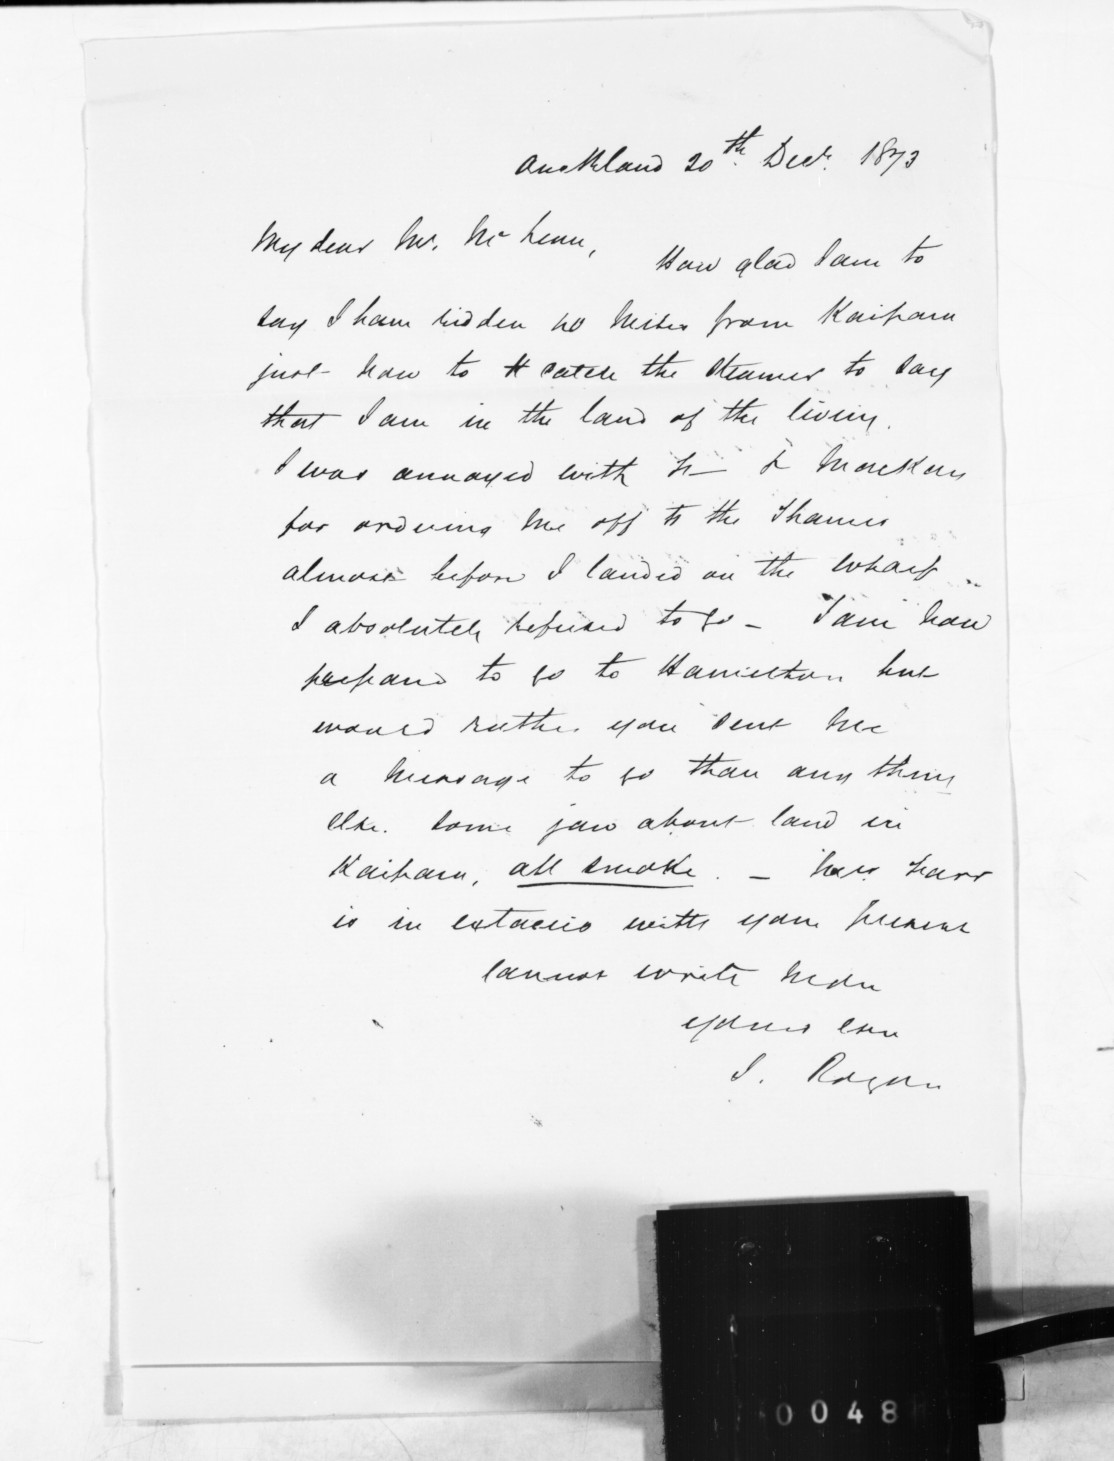 Auckland 20th. Decr. 1873
My dear Mr. McLean,
How glad I am to
say I have ridden 40 miles from Kaipara
just now to catch the steamer to say
that I am in the land of the living.
I was annoyed with H- T
for ordering me off to the Thames
almost before I landed on the wharf
I absolutely refused to go - I am now
prepared to go to Hamilton but
would rather you sent me
a message to go than any thing
else. Some jaw about land in
Kaipara, all smoke. - Mrs
is in extacies with your present
Cannot write more
yours ever
J. Rogan
0048